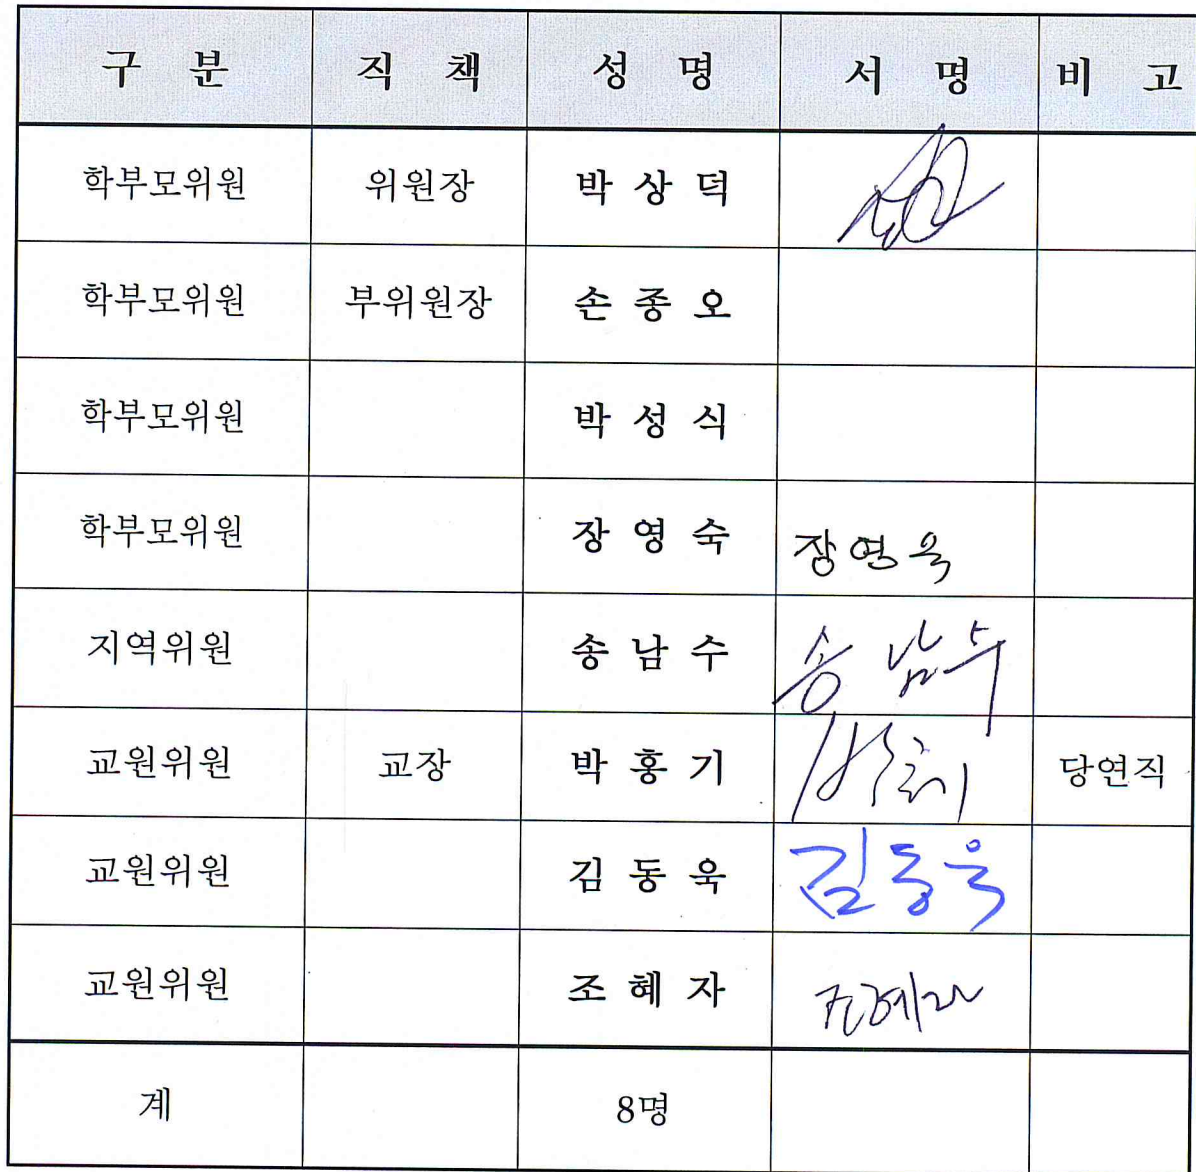 구 분 직 책 성 명 서 명 비 고
학부모위원 위원장 박 상 덕
학부모위원 부위원장 손 종 오
학부모위원 박 성 식
학부모위원 장 영 숙 장영숙
지역위원 송 남 수 송 남수
교원위원 교장 박 홍 기 박홍기 당연직
교원위원 김 동 욱 김동욱
교원위원 조 혜 자 조혜자
계 8명